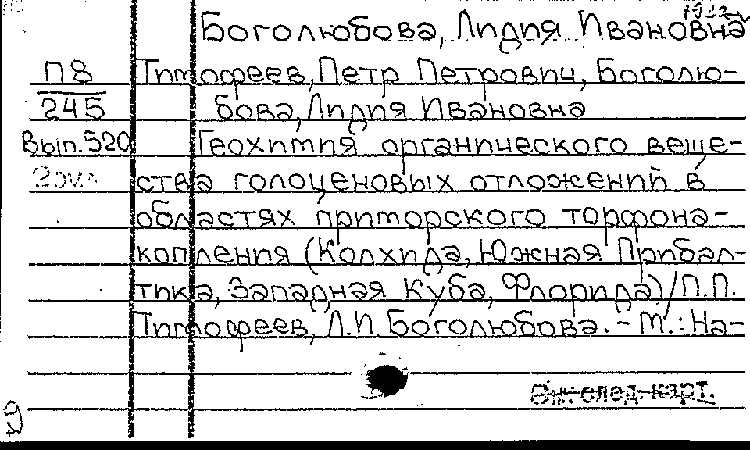 Боголюбова, Лидия Ивановна
П8
245
Вып.520
2экз
Тимофеев, Петр Петрович, Боголю-
бова, Лидия Ивановна
Геохимия органического веще-
ства голоценовых отложений в
областях приморского торфона-
копления (Колхида, Южная Прибал-
тика, Западная Куба, Флорида)/П.П.
Тимофеев, Л.И. Боголюбова. - М.: На-
См. след. карт.